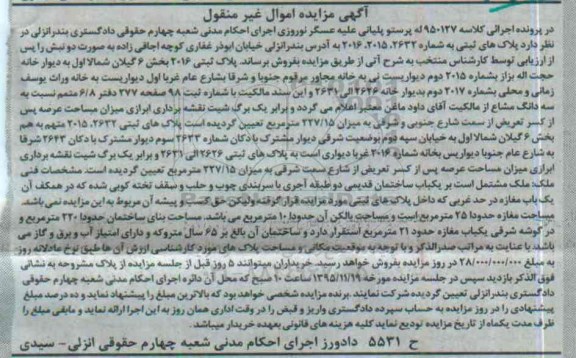 آگهی مزایده اموال غیر منقول
در پرونده اجرائی کلاسه ۹۵۰۱۲۷ له پرستو پلیانی علیه عسگر نوروزی اجرای احکام مدنی شعبه چهارم حقوقی دادگستری بندرانزلی در
نظر دارد پلاک های ثبتی به شماره ۲۶۳۲، ۲۰۱۵، ۲۰۱۶ به آدرس بندرانزلی خیابان ابوذر غفاری کوچه اجاقی زاده به صورت دو نبش را پس
از ارزیابی توسط کارشناس منتخب به شرح آتی از طریق مزایده بفروش برساند. پلاک ثبتی ۲۰۱۶ بخش ۶ گیلان شمالا اول به دیوار خانه
حجت اله براز بشماره ۲۰۱۵ دوم دیواریست نی به خانه مجاور مرقوم جنوبا و شرقا بشارع عام غربا اول دیواریست به خانه وراث یوسف
زمانی و محلی بشماره ۲۰۱۷ دوم بدیوار خانه ۲۶۲۶ الی ۲۶۳۱ و این سند مالکیت با شماره ثبت ۹۸ صفحه ۲۷۷ دفتر ۶/۸ متمم نسبت به
سه دانگ مشاع از مالکیت آقای داود ماغن معتبر اعلام می گردد و برابر یک برگ شیت نقشه برداری ابرازی میزان مساحت عرصه پس
از کسر تعریض از سمت شارع جنوبی و شرقی به میزان ۲۲۷/۱۵ مترمربع تعیین گردیده است پلاک های ثبتی ۲۶۳۲، ۲۰۱۵ متهم به هم
بخش ۶ گیلان شمالا اول به خیابان سپه دوم بوضعیت شرقی دیوار مشترک با دکان شماره ۲۶۳۳ سوم دیوار مشترک با دکان ۲۶۴۳ شرقا
به شارع عام جنوبا دیواریس بخانه شماره ۲۰۱۶ غربا دیواری است به پلاک های ثبتی ۲۶۲۶ الی ۲۶۳۱ و برابر یک برگ شیت نقشه برداری
ابرازی میزان مساحت عرصه پس از کسر تعریض از شارع سمت شرقی به میزان ۲۲۷/۱۵ مترمربع تعیین گردیده است. مشخصات فنی
ملک: ملک مشتمل است بر یکباب ساختمان قدیمی دو طبقه آجری با سربندی چوب و حلب و سقف تخته کوبی شده که در همکف آن
یک باب مغازه در حد غربی که داخل پلاک های ثبتی مورد مزایده قرار گرفته ولیکن حق کسب و پیشه آن مربوط به این مزایده نمی باشد.
مساحت مغازه حدودا ۲۵ مترمربع است و مساحت بالکن آن حدودا ۱۰ مترمربع می باشد. مساحت بنای ساختمان حدودا ۲۲۰ مترمربع و
در گوشه شرقی یکباب مغازه حدود ۲۱ مترمربع استقرار دارد و ساختمان آن بالغ بر ۶۵ سال متروکه و دارای امتیاز آب و برق و گاز می
باشد با عنایت به مراتب صدرالذکر و با توجه به موقعیت مکانی و مساحت پلاک های مورد کارشناسی ارزش آن ها طبق نرخ عادلانه روز
به مبلغ ۲۸/۰۰۰/۰۰۰/۰۰۰ در روز مزایده بفروش خواهد رسید. خریداران میتوانند ۵ روز قبل از جلسه مزایده از پلاک مشروحه به نشانی
فوق الذکر بازدید سپس در جلسه مزایده مورخه ۱۳۹۵/۱۱/۱۹ ساعت ۱۰ صبح که محل آن دائره اجرای احکام مدنی شعبه چهارم حقوقی
دادگستری بندرانزلی تعیین گردیده شرکت نمایند. برنده مزایده شخصی خواهد بود که بالاترین مبلغ را پیشنهاد نماید و ده درصد مبلغ
پیشنهادی را در روز مزایده به حساب سپرده دادگستری واریز و قبض را در وقت اداری همان روز به این اجرا ارائه نماید و مابقی مبلغ را
ظرف مدت یکماه از تاریخ مزایده تودیع نماید کلیه هزینه های قانونی بعهده خریدار میباشد.
ح ۵۵۳۱ دادورز اجرای احکام مدنی شعبه چهارم حقوقی انزلی – سیدی